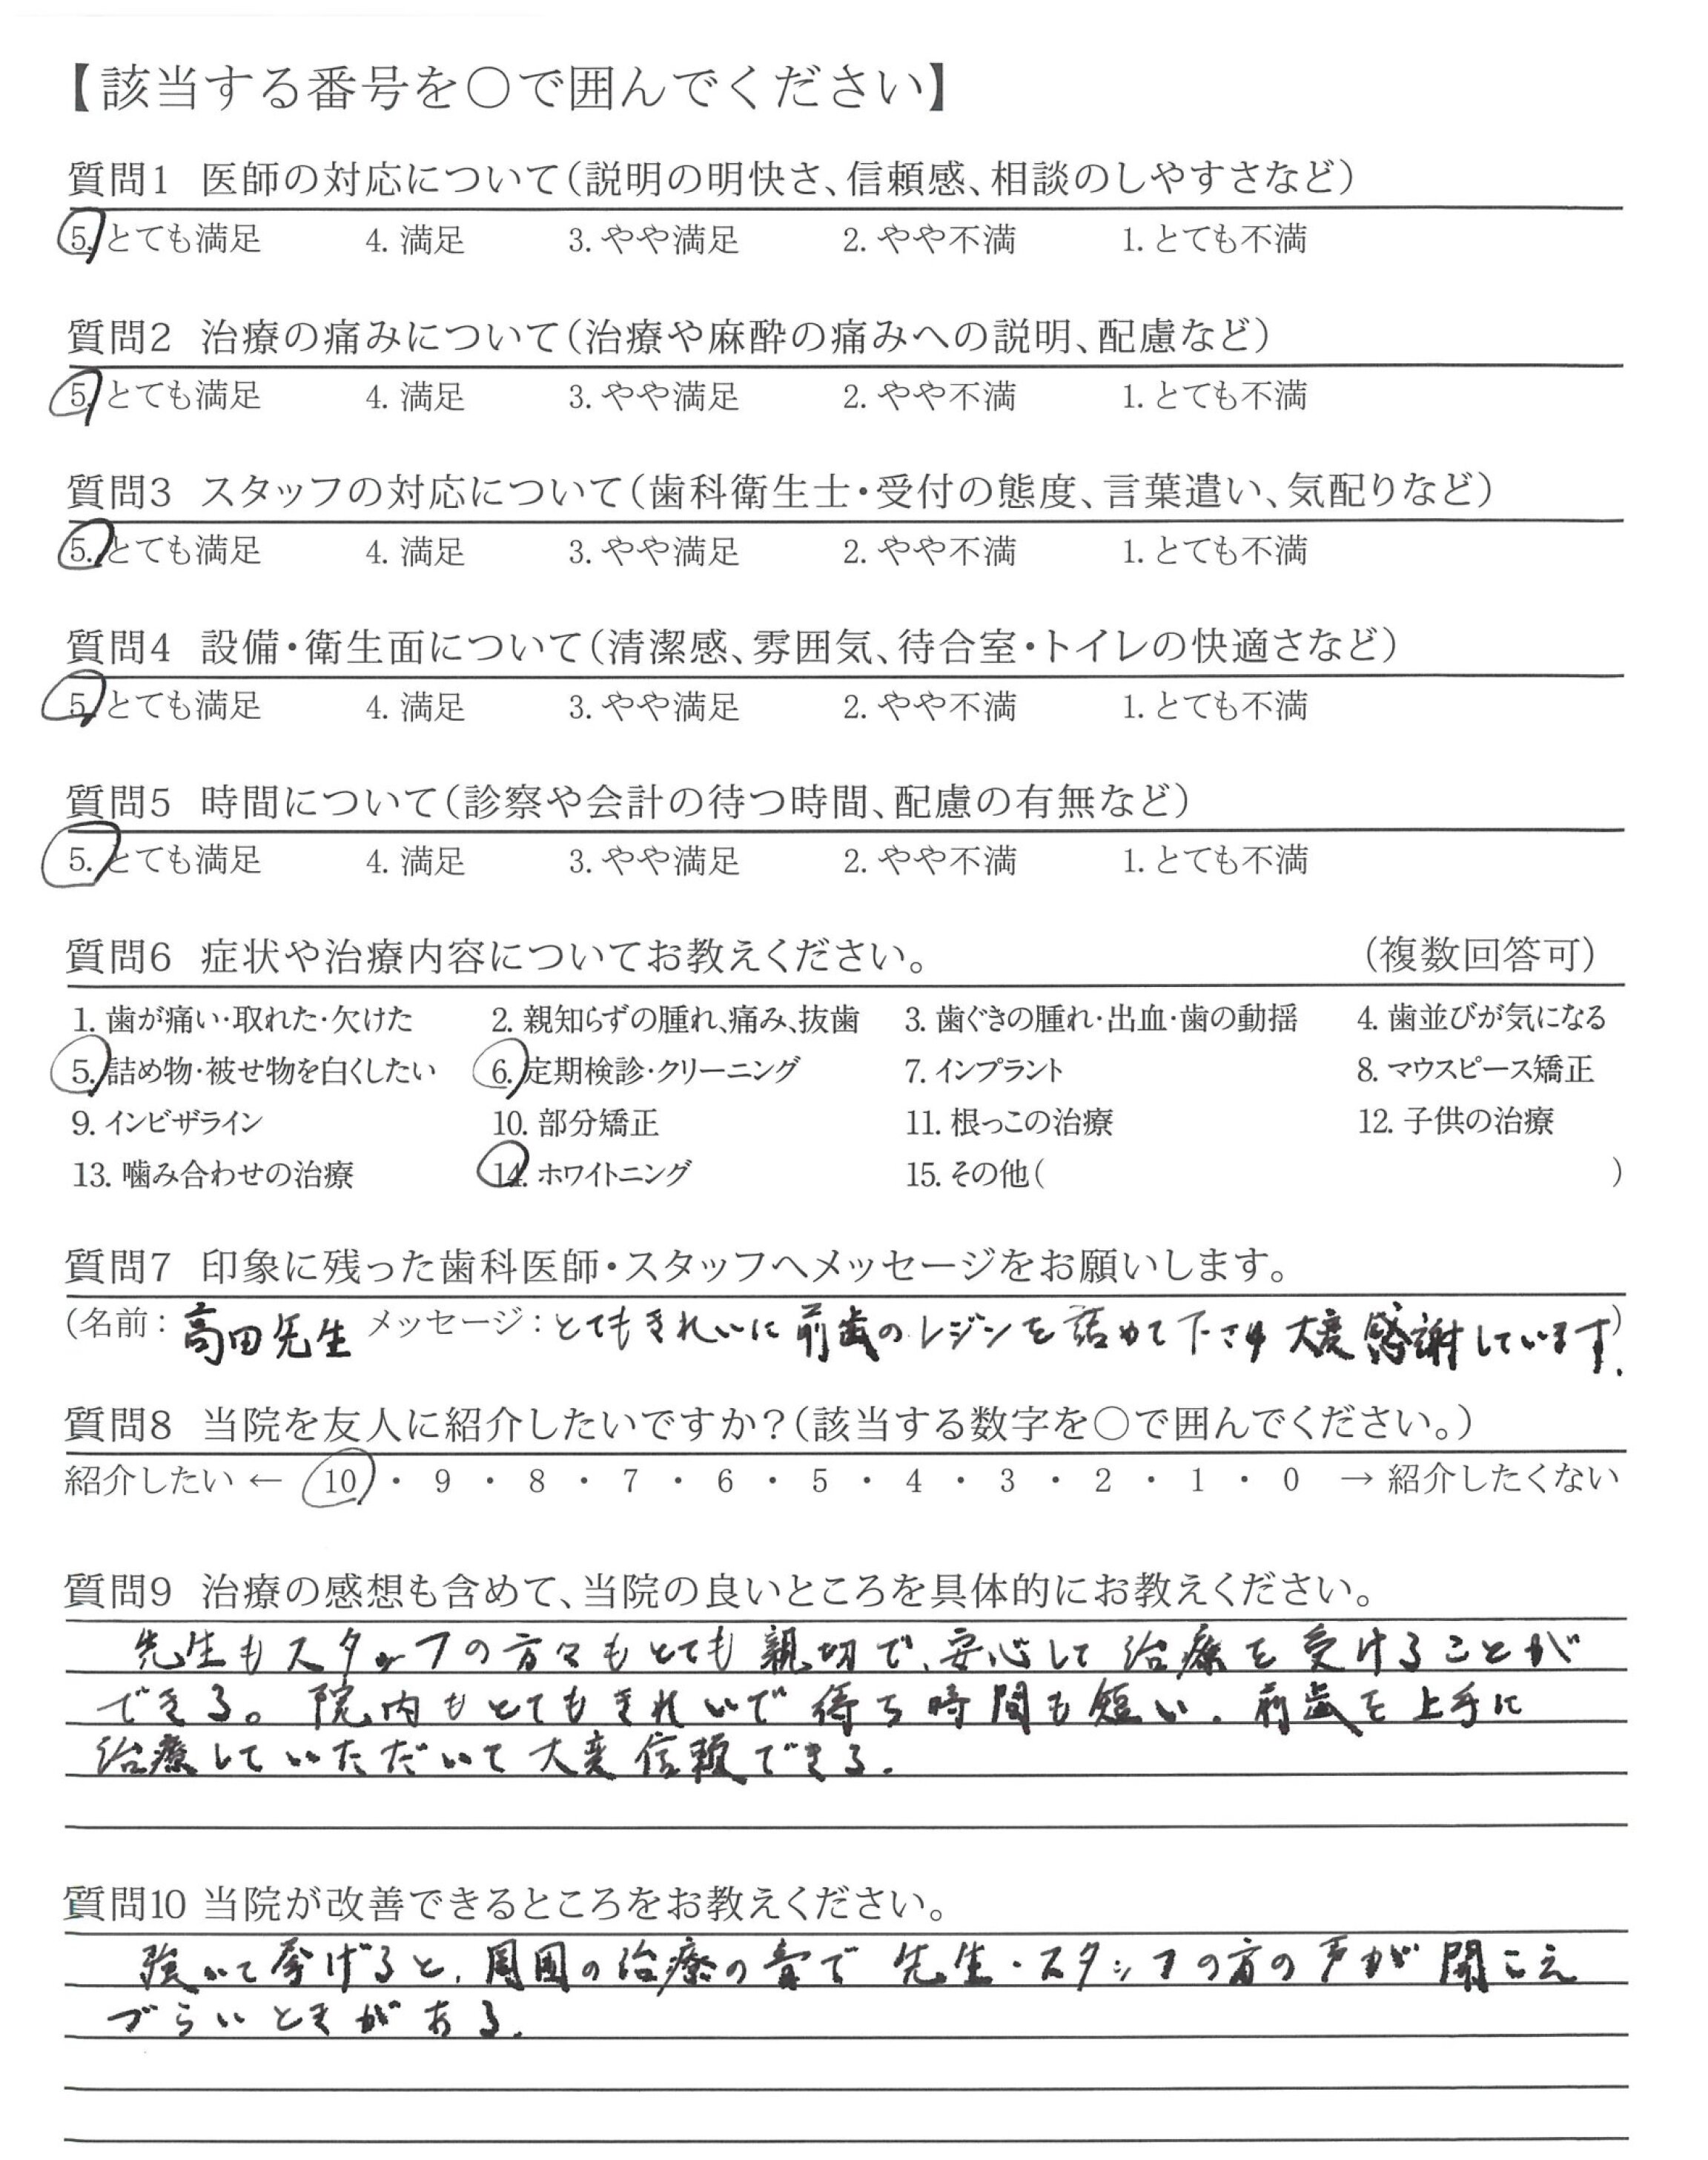 【該当する番号を○で囲んでください】
質問1 医師の対応について(説明の明快さ、信頼感、相談のしやすさなど)
5. とても満足 4. 満足 3. やや満足 2. やや不満 1. とても不満
質問2 治療の痛みについて(治療や麻酔の痛みへの説明、配慮など)
5. とても満足 4. 満足 3. やや満足 2. やや不満 1. とても不満
質問3 スタッフの対応について(歯科衛生士・受付の態度、言葉遣い、気配りなど)
5. とても満足 4. 満足 3. やや満足 2. やや不満 1. とても不満
質問4 設備・衛生面について(清潔感、雰囲気、待合室・トイレの快適さなど)
5. とても満足 4. 満足 3. やや満足 2. やや不満 1. とても不満
質問5 時間について(診察や会計の待つ時間、配慮の有無など)
5. とても満足 4. 満足 3. やや満足 2. やや不満 1. とても不満
質問6 症状や治療内容についてお教えください。 (複数回答可)
1. 歯が痛い・取れた・欠けた 2. 親知らずの腫れ、痛み、抜歯 3. 歯ぐきの腫れ・出血・歯の動揺 4. 歯並びが気になる
5. 詰め物・被せ物を白くしたい 6. 定期検診・クリーニング 7. インプラント 8. マウスピース矯正
9. インビザライン 10. 部分矯正 11. 根っこの治療 12. 子供の治療
13. 噛み合わせの治療 14. ホワイトニング 15. その他( )
質問7 印象に残った歯科医師・スタッフへメッセージをお願いします。
(名前: 高田先生 メッセージ: とてもきれいに前歯のレジンを詰めて下さり大変感謝しています.)
質問8 当院を友人に紹介したいですか?(該当する数字を○で囲んでください。)
紹介したい ← 10 ・ 9 ・ 8 ・ 7 ・ 6 ・ 5 ・ 4 ・ 3 ・ 2 ・ 1 ・ 0 → 紹介したくない
質問9 治療の感想も含めて、当院の良いところを具体的にお教えください。
先生もスタッフの方々もとても親切で、安心して治療を受けることが
できる。院内もとてもきれいで待ち時間も短い. 前歯を上手に
治療していただいて大変信頼できる.
質問10 当院が改善できるところをお教えください。
強いて挙げると, 周囲の治療の音で先生・スタッフの方の声が聞こえ
づらいときがある.